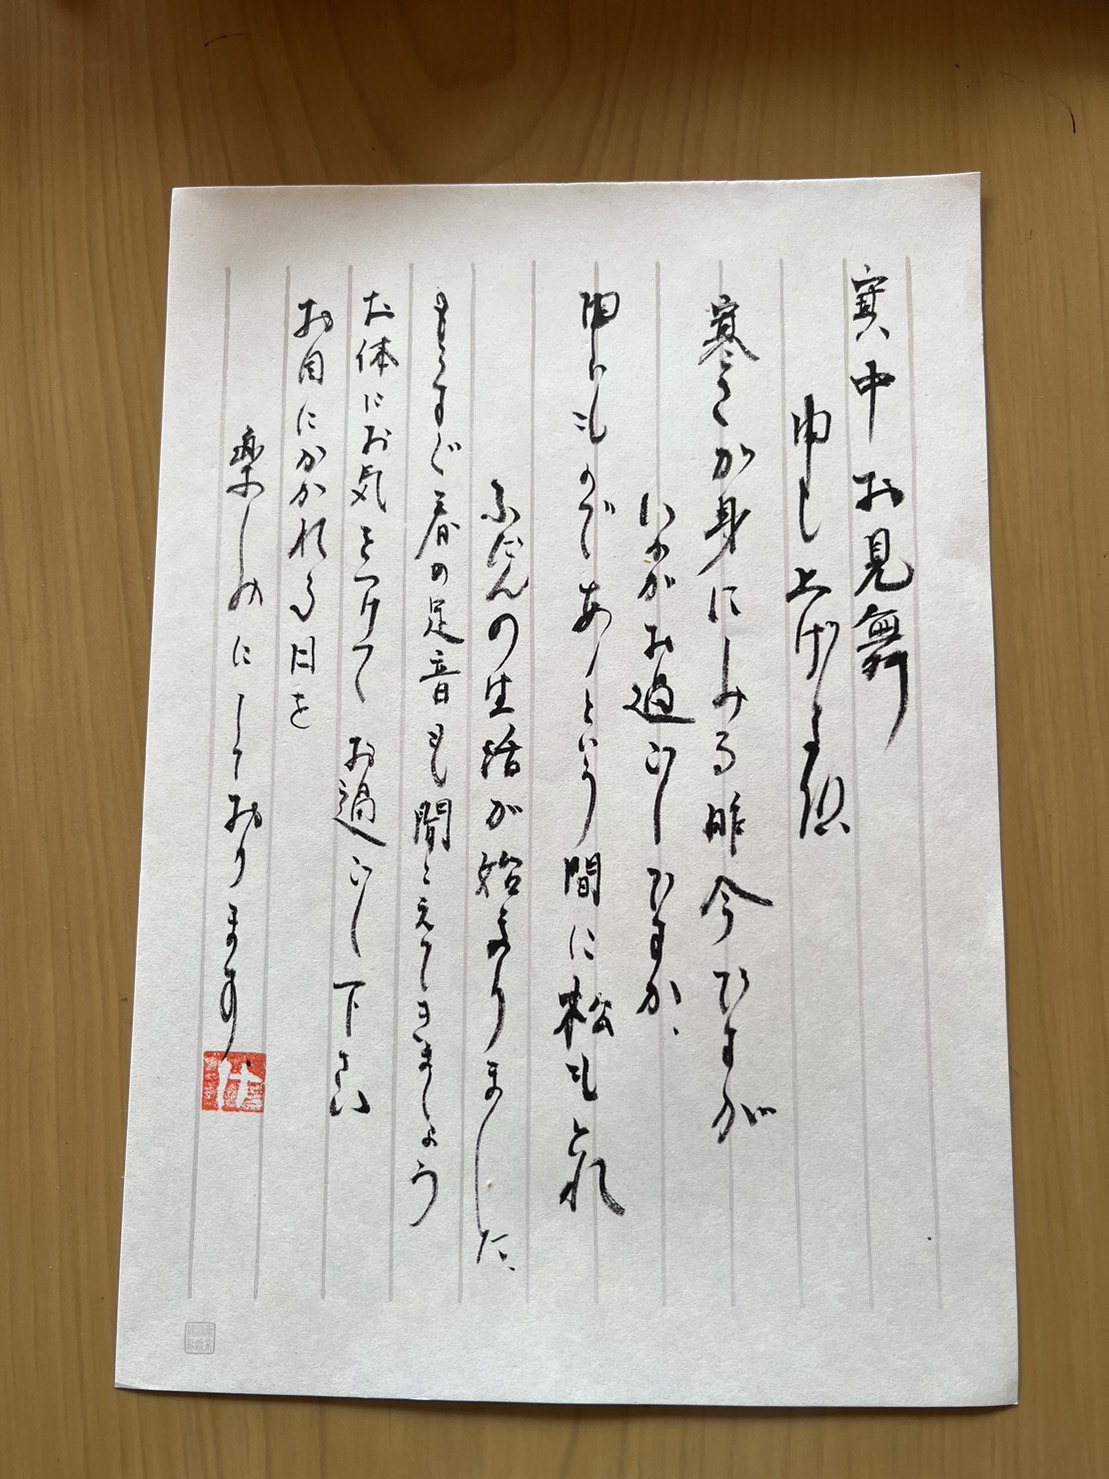 寒中お見舞
申し上げます
寒さが身にしみる昨今ですが
いかがお過ごしですか、
早いもので あっという間に松もとれ
ふだんの生活が始まりました、
もうすぐ春の足音も聞こえてきましょう
お体にお気をつけて お過ごし下さい
お目にかかれる日を
楽しみにしております